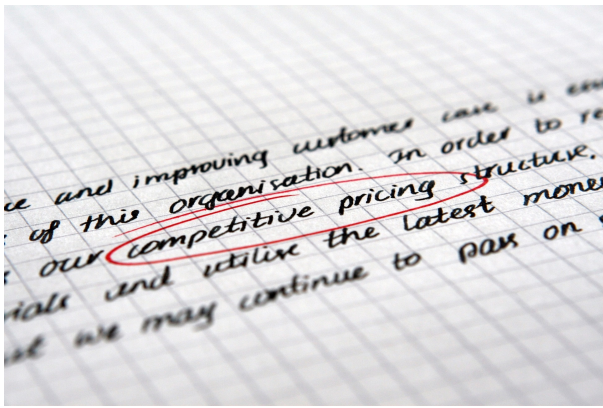 and improving customer care is
of this organisation. In order to re
our competitive pricing structure.
rials and utilise the latest mone
we may continue to pass on